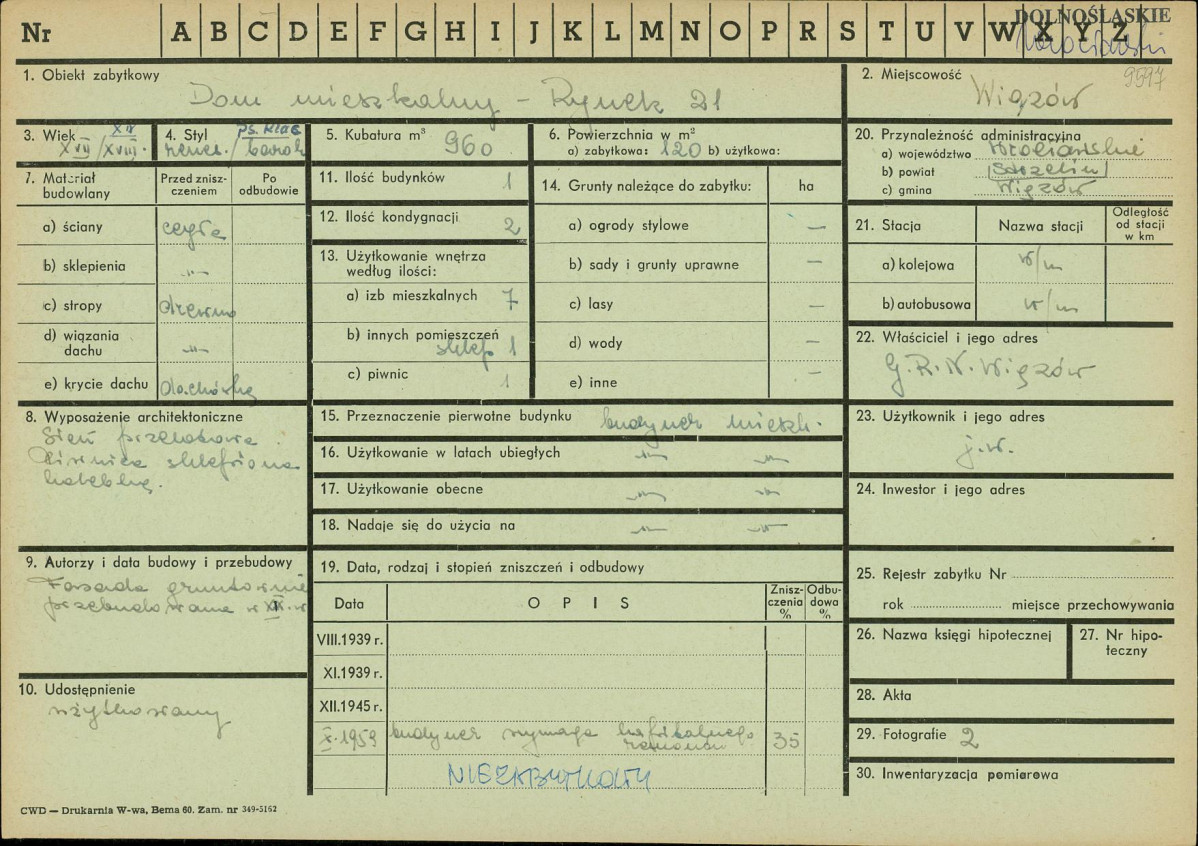 Nr A B C D E F G H I J K L M N O P R S T U V W X Y Z
DOLNOŚLĄSKIE
9597
1. Obiekt zabytkowy
Dom mieszkalny – Rynek 21
2. Miejscowość
Wiązów
3. Wiek XIX
XVII/XVIII.
4. Styl ps. klas
renes./barok
5. Kubatura m³ 960
6. Powierzchnia w m²
a) zabytkowa: 120 b) użytkowa:
7. Materiał budowlany
Przed zniszczeniem
Po odbudowie
a) ściany cegła
b) sklepienia –„–
c) stropy drewno
d) wiązania dachu –„–
e) krycie dachu dachówka
8. Wyposażenie architektoniczne
Sień przelotowa.
Piwnica sklepiona
kolebką.
9. Autorzy i data budowy i przebudowy
Fasada gruntownie
przebudowana w XIX. w
10. Udostępnienie
użytkowany
11. Ilość budynków 1
12. Ilość kondygnacji 2
13. Użytkowanie wnętrza według ilości:
a) izb mieszkalnych 7
b) innych pomieszczeń
sklep 1
c) piwnic 1
14. Grunty należące do zabytku: ha
a) ogrody stylowe —
b) sady i grunty uprawne —
c) lasy —
d) wody —
e) inne —
15. Przeznaczenie pierwotne budynku budynek mieszk.
16. Użytkowanie w latach ubiegłych –„– –„–
17. Użytkowanie obecne –„– –„–
18. Nadaje się do użycia na –„– –„–
19. Data, rodzaj i stopień zniszczeń i odbudowy
Data OPIS Zniszczenia % Odbudowa %
VIII.1939 r.
XI.1939 r.
XII.1945 r.
X.1959 budynek wymaga kapitalnego
remontu 35
NIEZABYTKOWY
20. Przynależność administracyjna
a) województwo Wrocławskie
b) powiat Strzelin
c) gmina Wiązów
21. Stacja Nazwa stacji Odległość od stacji w km
a) kolejowa w/m
b) autobusowa w/m
22. Właściciel i jego adres
G.R.N. Wiązów
23. Użytkownik i jego adres
j.w.
24. Inwestor i jego adres
25. Rejestr zabytku Nr
rok miejsce przechowywania
26. Nazwa księgi hipotecznej
27. Nr hipoteczny
28. Akta
29. Fotografie 2
30. Inwentaryzacja pomiarowa
CWD — Drukarnia W-wa, Bema 60. Zam. nr 349-5162